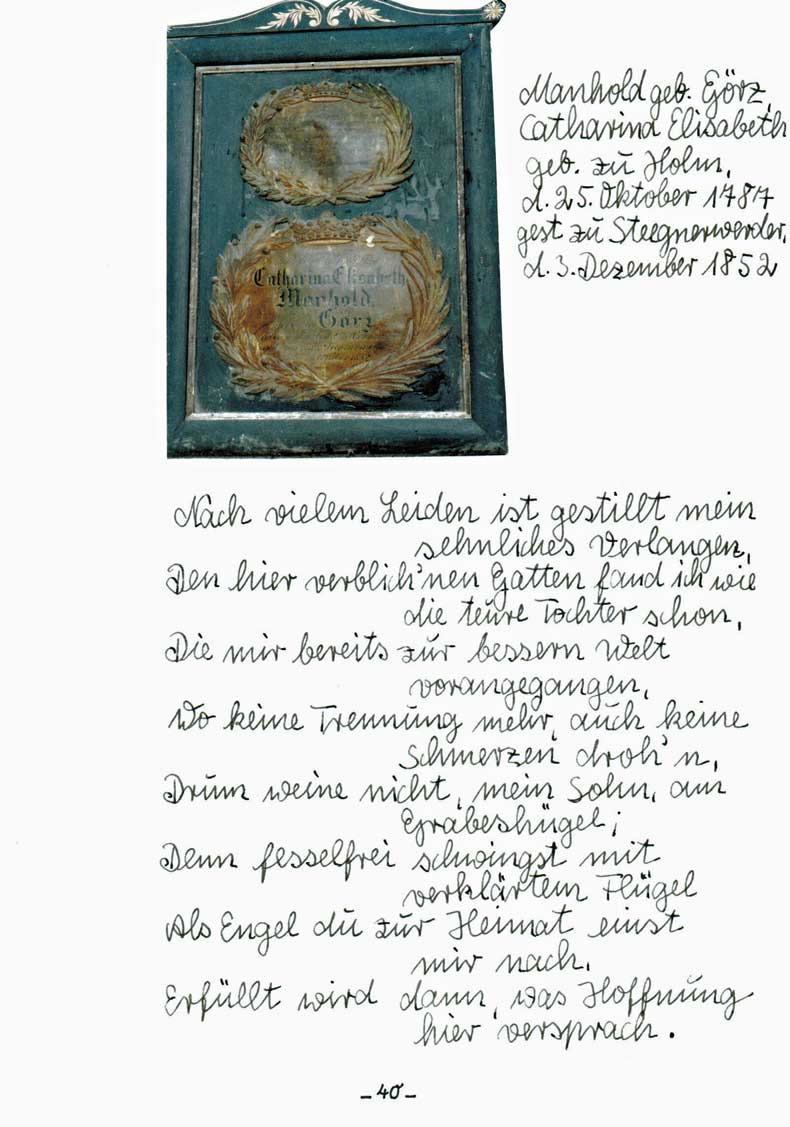 Manhold geb. Görz,
Catharina Elisabeth
geb. zu Holm,
d. 25. Oktober 1787
gest zu Steegnerwerder,
d. 3. Dezember 1852
Catharina Elisabeth
Manhold,
Görz
Nach vielem Leiden ist gestillt mein
sehnliches Verlangen,
Den hier verblich'nen Gatten fand ich wie
die teure Tochter schon,
Die mir bereits zur bessern Welt
vorangegangen,
Wo keine Trennung mehr, auch keine
Schmerzen droh'n,
Drum weine nicht, mein Sohn, am
Grabeshügel;
Denn fesselfrei schwingst mit
verklärtem Flügel
Als Engel du zur Heimat einst
mir nach.
Erfüllt wird dann, was Hoffnung
hier versprach.
- 40 -